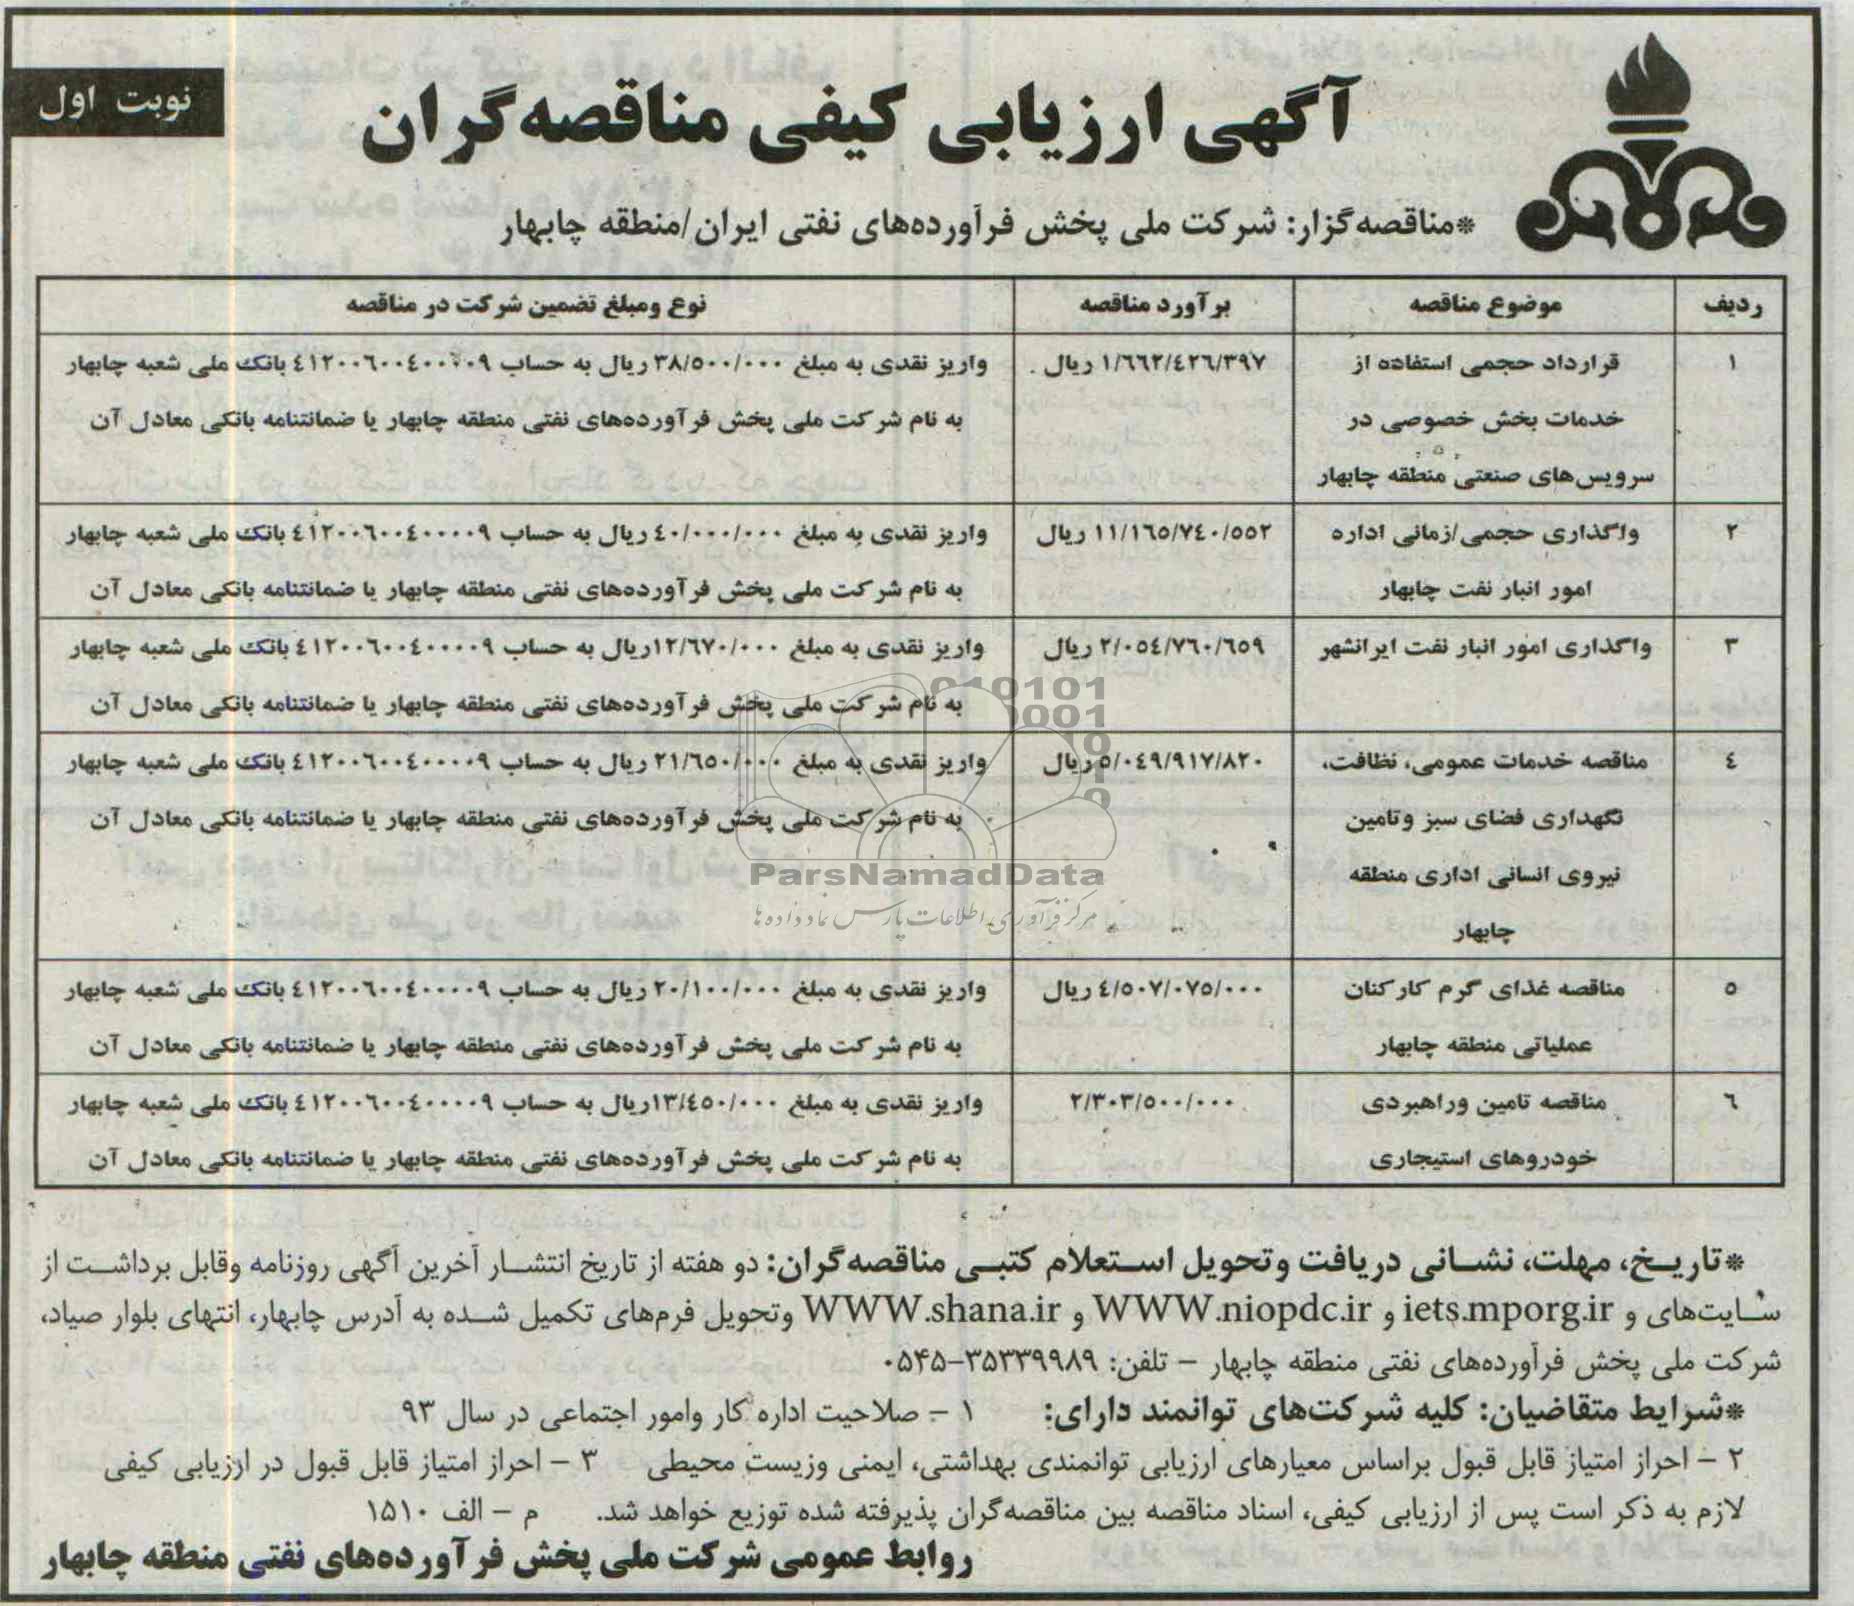 نوبت اول
آگهی ارزیابی کیفی مناقصه‌گران
*مناقصه‌گزار: شرکت ملی پخش فرآورده‌های نفتی ایران/منطقه چابهار
ردیف موضوع مناقصه برآورد مناقصه نوع ومبلغ تضمین شرکت در مناقصه
۱ قرارداد حجمی استفاده از ۱/۶۶۲/۴۲۶/۳۹۷ ریال واریز نقدی به مبلغ ۳۸/۵۰۰/۰۰۰ ریال به حساب ۴۱۲۰۰۶۰۰۴۰۰۰۰۹ بانک ملی شعبه چابهار
خدمات بخش خصوصی در به نام شرکت ملی پخش فرآورده‌های نفتی منطقه چابهار یا ضمانتنامه بانکی معادل آن
سرویس‌های صنعتی منطقه چابهار
۲ واگذاری حجمی/زمانی اداره ۱۱/۱۶۵/۷۴۰/۵۵۲ ریال واریز نقدی به مبلغ ۴۰/۰۰۰/۰۰۰ ریال به حساب ۴۱۲۰۰۶۰۰۴۰۰۰۰۹ بانک ملی شعبه چابهار
امور انبار نفت چابهار به نام شرکت ملی پخش فرآورده‌های نفتی منطقه چابهار یا ضمانتنامه بانکی معادل آن
۳ واگذاری امور انبار نفت ایرانشهر ۲/۰۵۴/۷۶۰/۶۵۹ ریال واریز نقدی به مبلغ ۱۲/۶۷۰/۰۰۰ریال به حساب ۴۱۲۰۰۶۰۰۴۰۰۰۰۹ بانک ملی شعبه چابهار
به نام شرکت ملی پخش فرآورده‌های نفتی منطقه چابهار یا ضمانتنامه بانکی معادل آن
۴ مناقصه خدمات عمومی، نظافت، ۵/۰۴۹/۹۱۷/۸۲۰ ریال واریز نقدی به مبلغ ۲۱/۶۵۰/۰۰۰ ریال به حساب ۴۱۲۰۰۶۰۰۴۰۰۰۰۹ بانک ملی شعبه چابهار
نگهداری فضای سبز وتامین به نام شرکت ملی پخش فرآورده‌های نفتی منطقه چابهار یا ضمانتنامه بانکی معادل آن
نیروی انسانی اداری منطقه
چابهار
۵ مناقصه غذای گرم کارکنان ۴/۵۰۷/۰۷۵/۰۰۰ ریال واریز نقدی به مبلغ ۲۰/۱۰۰/۰۰۰ ریال به حساب ۴۱۲۰۰۶۰۰۴۰۰۰۰۹ بانک ملی شعبه چابهار
عملیاتی منطقه چابهار به نام شرکت ملی پخش فرآورده‌های نفتی منطقه چابهار یا ضمانتنامه بانکی معادل آن
۶ مناقصه تامین وراهبردی ۲/۳۰۳/۵۰۰/۰۰۰ واریز نقدی به مبلغ ۱۳/۴۵۰/۰۰۰ریال به حساب ۴۱۲۰۰۶۰۰۴۰۰۰۰۹ بانک ملی شعبه چابهار
خودروهای استیجاری به نام شرکت ملی پخش فرآورده‌های نفتی منطقه چابهار یا ضمانتنامه بانکی معادل آن
ParsNamadData
مرکز فرآوری اطلاعات پارس نماد داده‌ها
*تاریخ، مهلت، نشانی دریافت وتحویل استعلام کتبی مناقصه‌گران: دو هفته از تاریخ انتشار آخرین آگهی روزنامه وقابل برداشت از
سایت‌های و iets.mporg.ir و WWW.niopdc.ir و WWW.shana.ir وتحویل فرم‌های تکمیل شده به آدرس چابهار، انتهای بلوار صیاد،
شرکت ملی پخش فرآورده‌های نفتی منطقه چابهار – تلفن: ۳۵۳۳۹۹۸۹-۰۵۴۵
*شرایط متقاضیان: کلیه شرکت‌های توانمند دارای: ۱ – صلاحیت اداره کار وامور اجتماعی در سال ۹۳
۲ – احراز امتیاز قابل قبول براساس معیارهای ارزیابی توانمندی بهداشتی، ایمنی وزیست محیطی ۳ – احراز امتیاز قابل قبول در ارزیابی کیفی
لازم به ذکر است پس از ارزیابی کیفی، اسناد مناقصه بین مناقصه‌گران پذیرفته شده توزیع خواهد شد. م – الف ۱۵۱۰
روابط عمومی شرکت ملی پخش فرآورده‌های نفتی منطقه چابهار